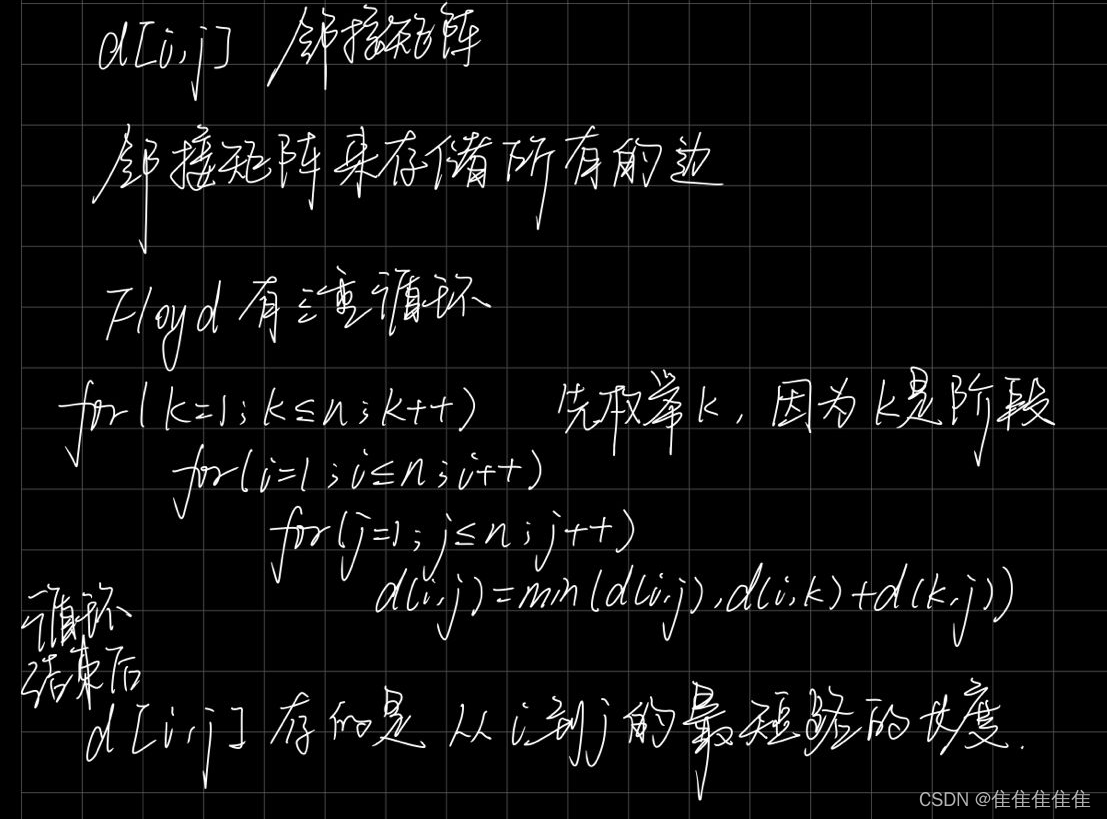 d[i,j] 邻接矩阵
邻接矩阵来存储所有的边
Floyd 有三重循环
for(k=1;k≤n;k++) 先枚举k,因为k是阶段
for(i=1;i≤n;i++)
for(j=1;j≤n;j++)
d(i,j)=min(d(i,j),d(i,k)+d(k,j))
循环
结束后
d[i,j] 存的是 从i到j的最短路的长度.
CSDN @隹隹隹隹隹